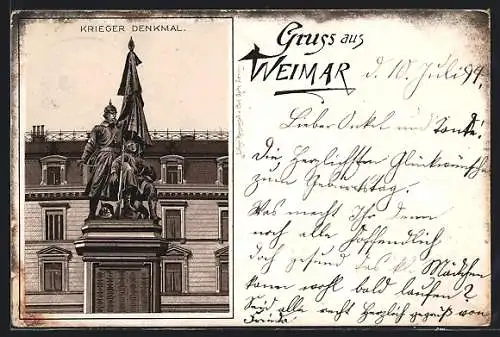 KRIEGER DENKMAL.
Gruss aus
WEIMAR
d. 10. Juli 94.
Lieber Onkel und Tante!
Die herzlichsten Glückwünsche
zum Geburtstag.
Was macht Ihr denn
noch alle hoffendlich
doch gesund das kl. Mädchen
kann wohl bald laufen?
Seid alle recht herzlich gegrüßt von